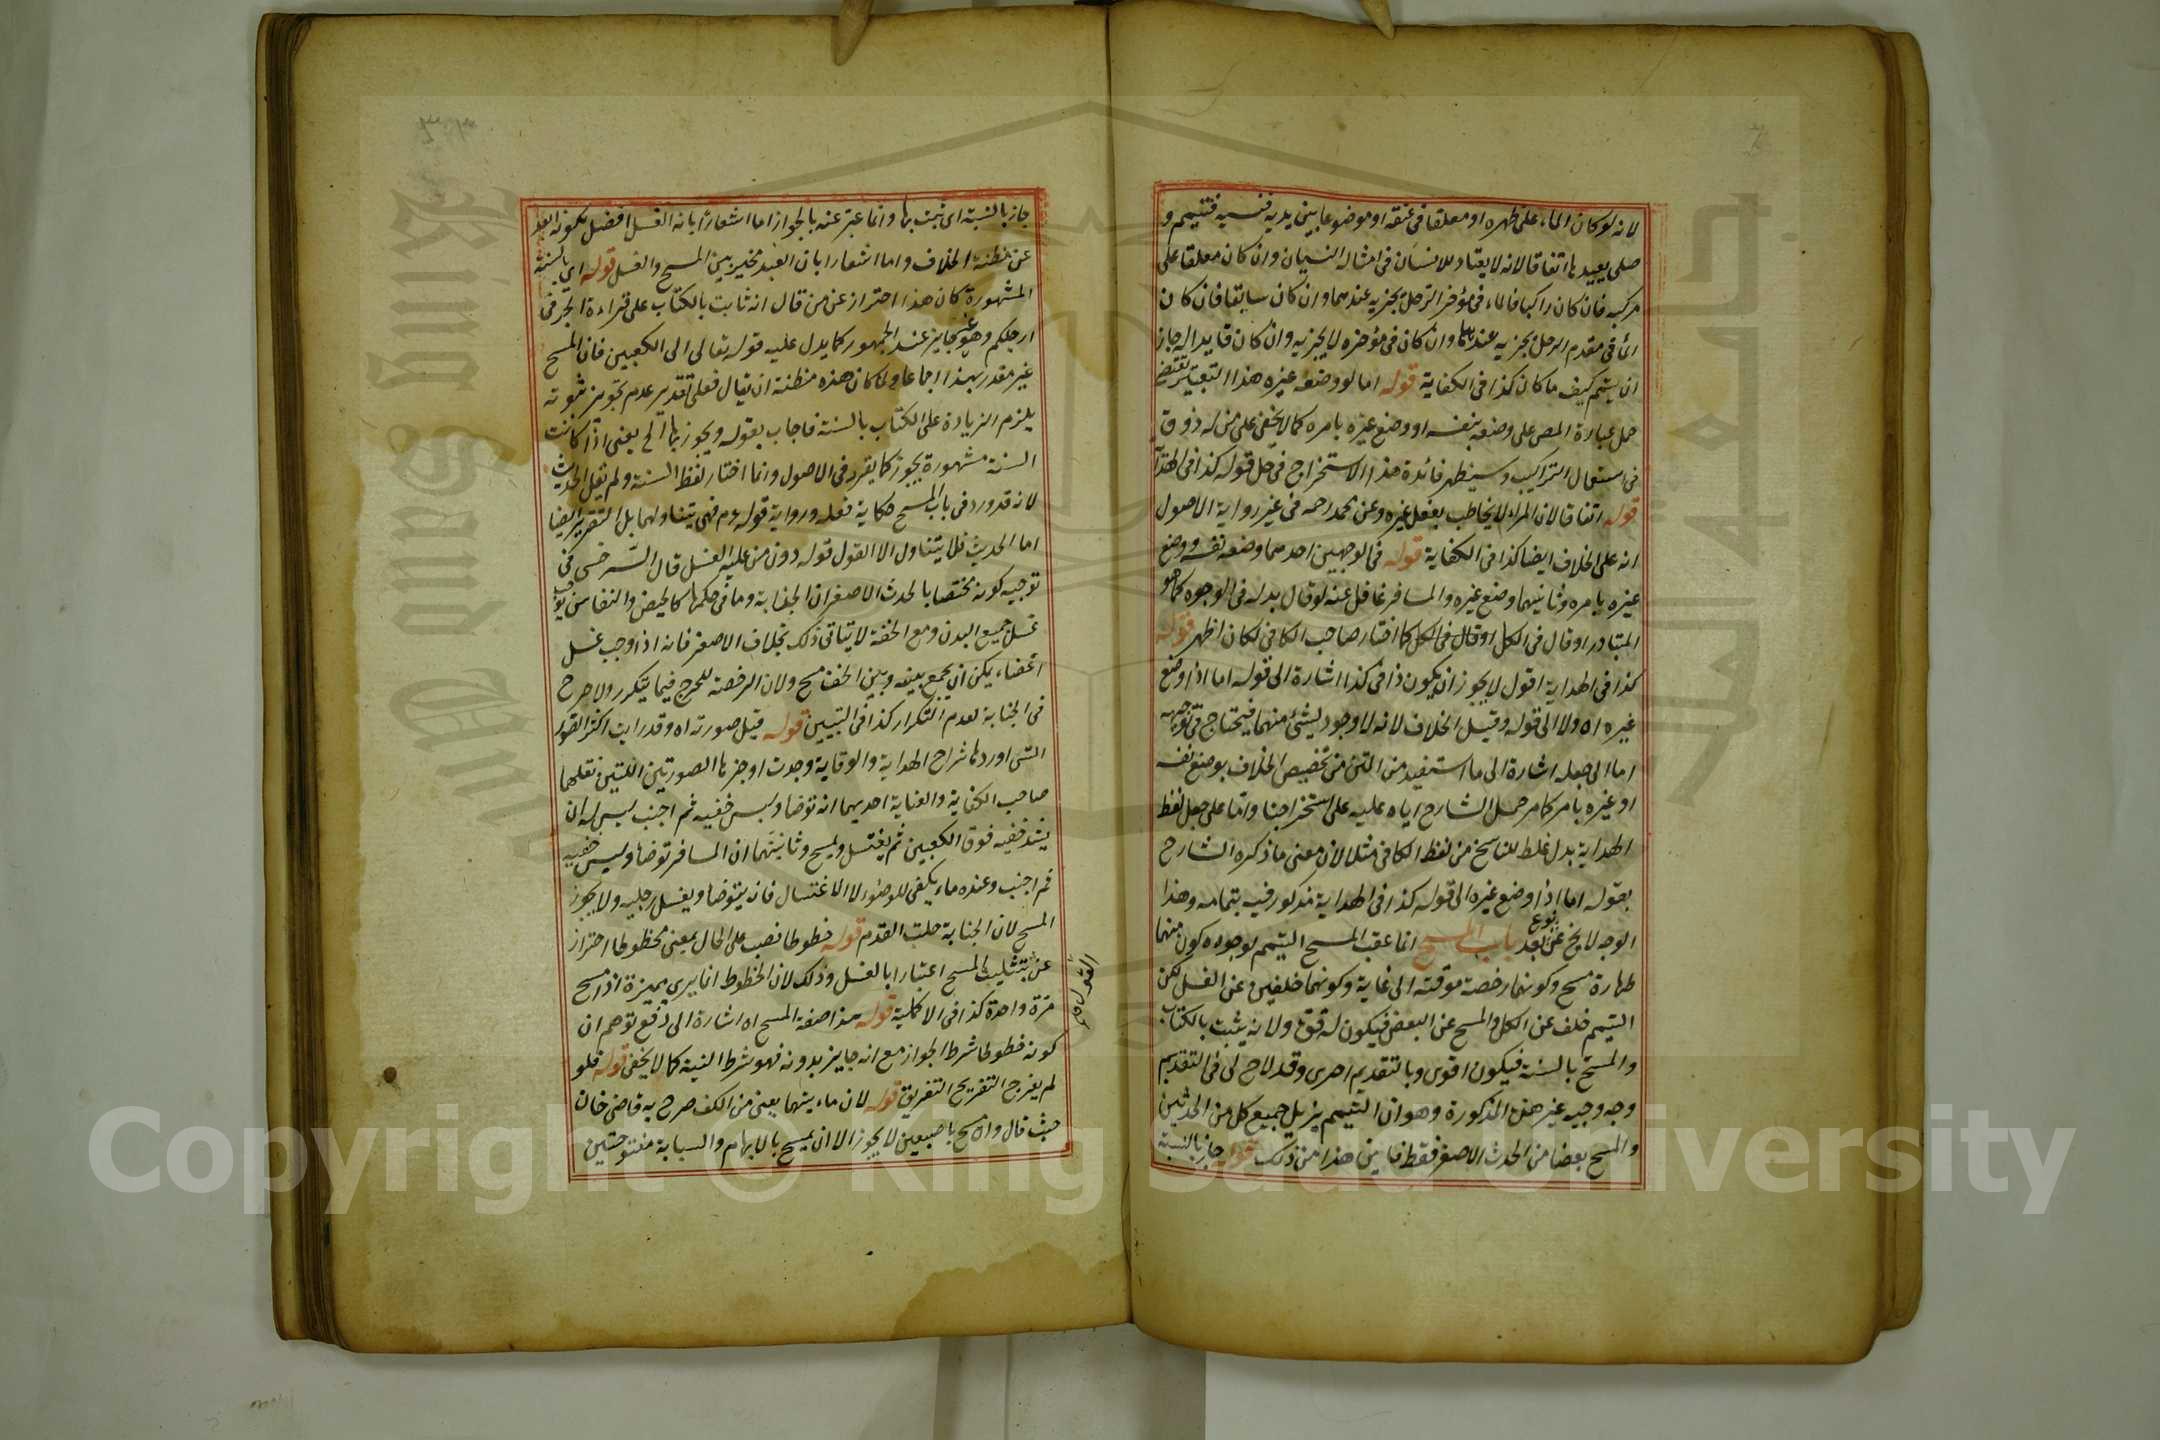 لانه لو كان الماء على ظهره او معلقا فى عنقه او موضوعا بين يديه فنسيه فتيمم و
صلى يعيدها اتفاقا لانه لا يعتاد للانسان فى امثاله النسيان وان كان معلقا على
مركبه فان كان راكبا فالماء فى مؤخر الرحل يجزيه عندهما وان كان سايقا فان كان
الماء فى مقدم الرحل يجزيه عندهما وان كان فى مؤخره لا يجزيه وان كان قايدا له جاز
ان يتيمم كيف ما كان كذا فى الكفاية قوله اما لو وضعه غيره هذا التعبير يقتضى
حمل عبارة المص على وضعه بنفسه او وضع غيره بامره كما لا يخفى على من له ذوق
فى استعمال التراكيب وسيظهر فائدة هذا الاستخراج فى حل قوله كذا فى الهداية
قوله اتفاقا لان المرء لا يخاطب بفعل غيره وعن محمد رحمه فى غير رواية الاصول
انه على الخلاف ايضا كذا فى الكفاية قوله فى الوجهين احدهما وضعه نفسه ووضع
غيره بامره وثانيهما وضع غيره والمسافر غافل عنه لو قال بدله فى الوجوه كما هو
المتبادر او قال فى الكل او قال فى الكل كما اختار صاحب الكافى لكان اظهر قوله
كذا فى الهداية اقول لا يجوز ان يكون ذا فى كذا اشارة الى قوله اما اذا وضع
غيره اه ولا الى قوله وقيل الخلاف لانه لا وجود لشئ منهما فيحتاج فى توجيهه
اما الى جعله اشارة الى ما استفيد من المتن من تخصيص الخلاف بوضع نفسه
او غيره بامر كما مر حمل الشارح اياه عليه على استخراجنا واما على جعل لفظ
الهداية بدل غلط للناسخ من لفظ الكافى مثلا لان معنى ما ذكره الشارح
بقوله اما اذا وضع غيره الى قوله كذا فى الهداية مذكور فيه بتمامه وهذا
الوجه لا يخ عن نوع بعد باب المسح انما عقب المسح التيمم لوجوه كون منهما
طهارة مسح وكونهما رخصة موقتة الى غاية وكونهما خلفين عن الغسل لكن
التيمم خلف عن الكل والمسح عن البعض فيكون له قوة ولانه يثبت بالكتاب
والمسح بالسنة فيكون اقوى وبالتقديم احرى وقد لاح لى فى التقديم
وجه وجيه غير هذه المذكورة وهو ان التيمم يزيل جميع كل من الحدثين
والمسح بعضا من الحدث الاصغر فقط فاين هذا من ذلك قوله جاز بالسنة
جاز بالسنة اى ثبت بها وانما عبر عنه بالجواز اما اشعارا بانه الغسل افضل لكونه ابعد
عن مظنة الخلاف واما اشعارا بان العبد مخير بين المسح والغسل قوله اى بالسنة
المشهورة كان هذا احتراز عن من قال انه ثابت بالكتاب على قراءة الجر فى
ارجلكم وهو غير جايز عند الجمهور كما يدل عليه قوله تعالى الى الكعبين فان المسح
غير مقدر بهذا اجماعا ولما كان هذه مظنة ان يقال فعلى تقدير عدم تجويز ثبوته
يلزم الزيادة على الكتاب بالسنة فاجاب بقوله ويجوز بها الخ يعنى اذا كانت
السنة مشهورة يجوز كما يقرر فى الاصول وانما اختار لفظ السنة ولم يقل الحديث
لانه قد ورد فى باب المسح حكاية فعله ورواية قوله عم فهى يتناولهما بل التقرير ايضا
اما الحديث فلا يتناول الا القول قوله دون من عليه الغسل قال السرخسى فى
توجيه كونه مختصا بالحدث الاصغر ان الجنابة وما فى حكمها كالحيض والنفاس توجب
غسل جميع البدن ومع الخفة لا يتاتى ذلك بخلاف الاصغر فانه اذا وجب غسل
اعضاء يمكن ان يجمع بينه وبين الخف مسح ولان الرخصة للحرج فيما يتكرر ولا حرج
فى الجنابة لعدم التكرار كذا فى التبيين قوله قيل صورته اه وقد رايت اكثر الصور
التى اوردها شراح الهداية والوقاية وجدت اوجزها الصورتين اللتين نقلهما
صاحب الكفاية والعناية احديهما انه توضا ولبس خفيه ثم اجنب ليس له ان
يشد خفيه فوق الكعبين ثم يغتسل ويمسح وثانيتهما ان المسافر توضا ولبس خفيه
ثم اجنب وعنده ماء يكفى للوضوء لا الاغتسال فانه يتوضا ويغسل رجليه ولا يجوز
المسح لان الجنابة حلت القدم قوله خطوطا نصب على الحال بمعنى مخطوطا احتراز
عن تثليث المسح اعتبارا بالغسل وذلك لان الخطوط انما يرى مميزة اذا مسح
مرة واحدة كذا فى الاكملية قوله هذا صفة المسح اه اشارة الى دفع توهم ان
كونه خطوطا شرط الجواز مع انه جايز بدونه فهو شرط السنة كما لا يخفى قوله فلو
لم يفرج التفريج التفريق قوله لان ماء بينهما يعنى من الكف صرح به قاضى خان
حيث قال وان مسح باصبعين لا يجوز الا ان يمسح بالابهام والسبابة مفتوحتين
Copyright © King Saud University